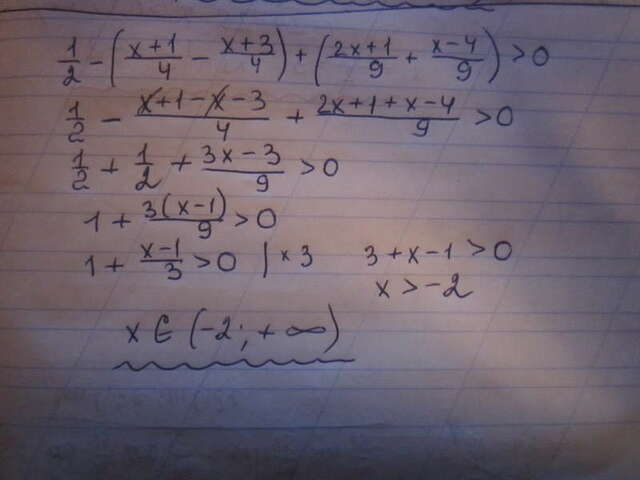 1/2 - ((x+1)/4 - (x+3)/4) + ((2x+1)/9 + (x-4)/9) > 0
1/2 - (x+1-x-3)/4 + (2x+1+x-4)/9 > 0
1/2 + 1/2 + (3x-3)/9 > 0
1 + 3(x-1)/9 > 0
1 + (x-1)/3 > 0 | × 3 3+x-1 > 0
x > -2
x ∈ (-2; +∞)